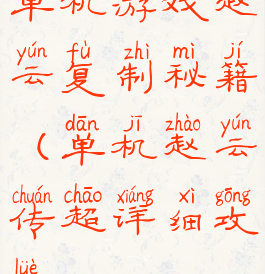 单机游戏赵
yún fù zhì mì jí
云复制秘籍
dān jī zhào yún
（单机赵云
chuán chāo xiáng xì gōng
传超详细攻
lüè